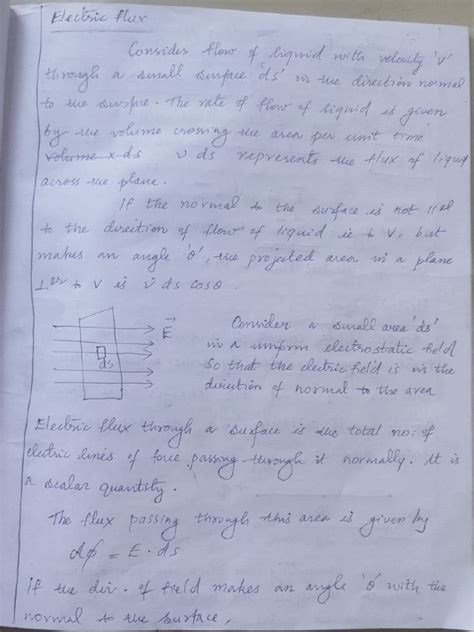 Electric flux
Consider flow of liquid with velocity 'v'
through a small surface 'ds' in the direction normal
to the surface. The rate of flow of liquid is given
by the volume crossing the area per unit time
volume x ds v ds represents the flux of liquid
across the plane.
If the normal to the surface is not ||el
to the direction of flow of liquid ie to V, but
makes an angle 'θ', the projected area in a plane
⊥er to V is v ds cosθ.
E
ds
Consider a small area 'ds'
in a uniform electrostatic field
So that the electric field is in the
direction of normal to the area
Electric flux through a surface is the total no: of
electric lines of force passing through it normally. It is
a scalar quantity.
The flux passing through this area is given by
dϕ = E . ds
if the dir. of field makes an angle 'θ' with the
normal to the surface,